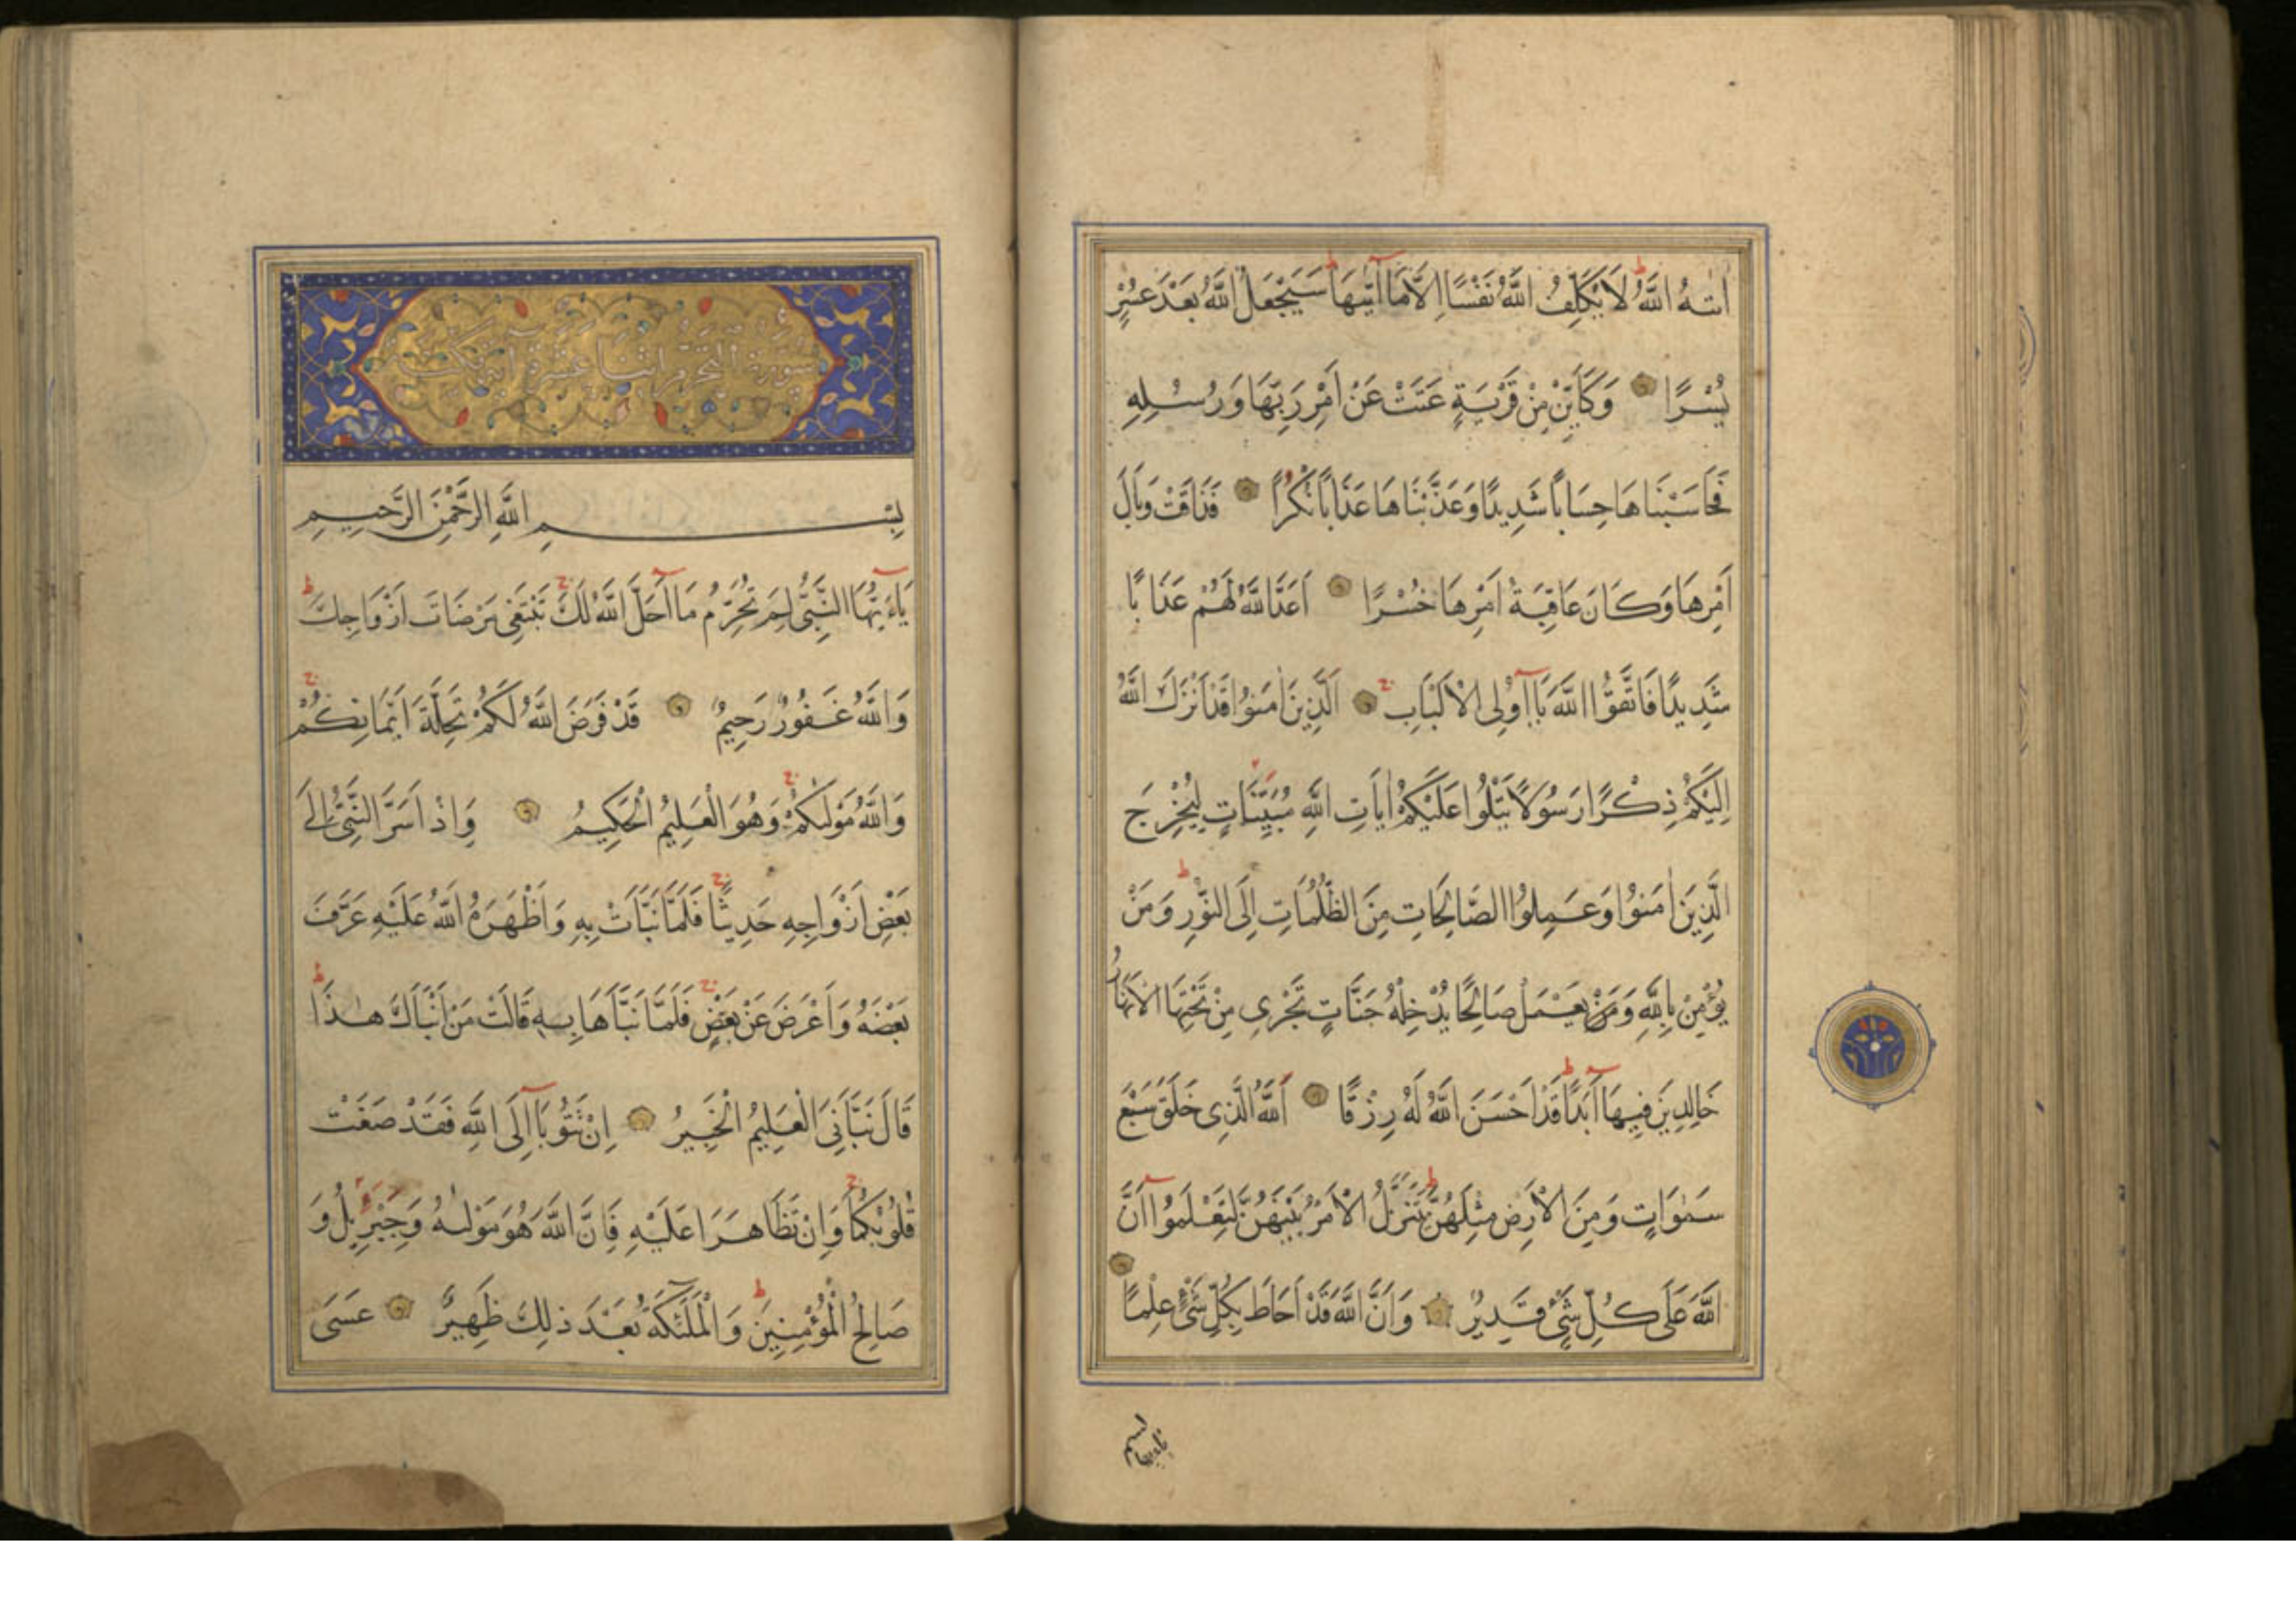 اٰتٰيهُ اللّٰهُ لَا يُكَلِّفُ اللّٰهُ نَفْسًا اِلَّا مَا اٰتٰيهَا سَيَجْعَلُ اللّٰهُ بَعْدَ عُسْرٍ
يُسْرًا وَكَاَيِّنْ مِنْ قَرْيَةٍ عَتَتْ عَنْ اَمْرِ رَبِّهَا وَرُسُلِهِ
فَحَاسَبْنَاهَا حِسَابًا شَدِيدًا وَعَذَّبْنَاهَا عَذَابًا نُكْرًا فَذَاقَتْ وَبَالَ
اَمْرِهَا وَكَانَ عَاقِبَةُ اَمْرِهَا خُسْرًا اَعَدَّ اللّٰهُ لَهُمْ عَذَابًا
شَدِيدًا فَاتَّقُوا اللّٰهَ يَا اُولِى الْاَلْبَابِ اَلَّذِينَ اٰمَنُوا قَدْ اَنْزَلَ اللّٰهُ
اِلَيْكُمْ ذِكْرًا رَسُولًا يَتْلُوا عَلَيْكُمْ اٰيَاتِ اللّٰهِ مُبَيِّنَاتٍ لِيُخْرِجَ
الَّذِينَ اٰمَنُوا وَعَمِلُوا الصَّالِحَاتِ مِنَ الظُّلُمَاتِ اِلَى النُّورِ وَمَنْ
يُؤْمِنْ بِاللّٰهِ وَيَعْمَلْ صَالِحًا يُدْخِلْهُ جَنَّاتٍ تَجْرِى مِنْ تَحْتِهَا الْاَنْهَارُ
خَالِدِينَ فِيهَا اَبَدًا قَدْ اَحْسَنَ اللّٰهُ لَهُ رِزْقًا اَللّٰهُ الَّذِى خَلَقَ سَبْعَ
سَمٰوَاتٍ وَمِنَ الْاَرْضِ مِثْلَهُنَّ يَتَنَزَّلُ الْاَمْرُ بَيْنَهُنَّ لِتَعْلَمُوا اَنَّ
اللّٰهَ عَلٰى كُلِّ شَىْءٍ قَدِيرٌ وَاَنَّ اللّٰهَ قَدْ اَحَاطَ بِكُلِّ شَىْءٍ عِلْمًا
سورة التحريم اثنتا عشرة آية
بِسْمِ اللّٰهِ الرَّحْمٰنِ الرَّحِيمِ
يَاءَيُّهَا النَّبِىُّ لِمَ تُحَرِّمُ مَا اَحَلَّ اللّٰهُ لَكَ تَبْتَغِى مَرْضَاتَ اَزْوَاجِكَ
وَاللّٰهُ غَفُورٌ رَحِيمٌ قَدْ فَرَضَ اللّٰهُ لَكُمْ تَحِلَّةَ اَيْمَانِكُمْ
وَاللّٰهُ مَوْلٰيكُمْ وَهُوَ الْعَلِيمُ الْحَكِيمُ وَاِذْ اَسَرَّ النَّبِىُّ اِلٰى
بَعْضِ اَزْوَاجِهِ حَدِيثًا فَلَمَّا نَبَّاَتْ بِهِ وَاَظْهَرَهُ اللّٰهُ عَلَيْهِ عَرَّفَ
بَعْضَهُ وَاَعْرَضَ عَنْ بَعْضٍ فَلَمَّا نَبَّاَهَا بِهِ قَالَتْ مَنْ اَنْبَاَكَ هٰذَا
قَالَ نَبَّاَنِىَ الْعَلِيمُ الْخَبِيرُ اِنْ تَتُوبَا اِلَى اللّٰهِ فَقَدْ صَغَتْ
قُلُوبُكُمَا وَاِنْ تَظَاهَرَا عَلَيْهِ فَاِنَّ اللّٰهَ هُوَ مَوْلٰيهُ وَجِبْرِيلُ وَ
صَالِحُ الْمُؤْمِنِينَ وَالْمَلٰئِكَةُ بَعْدَ ذٰلِكَ ظَهِيرٌ عَسٰى